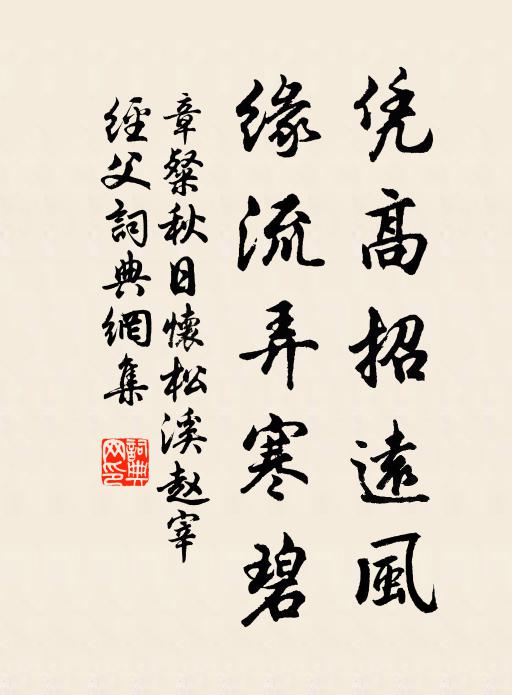 凭高招遠風
缘流弄寒碧
章粲秋日懷松溪赵宰
經父詞典網集
詞典网印